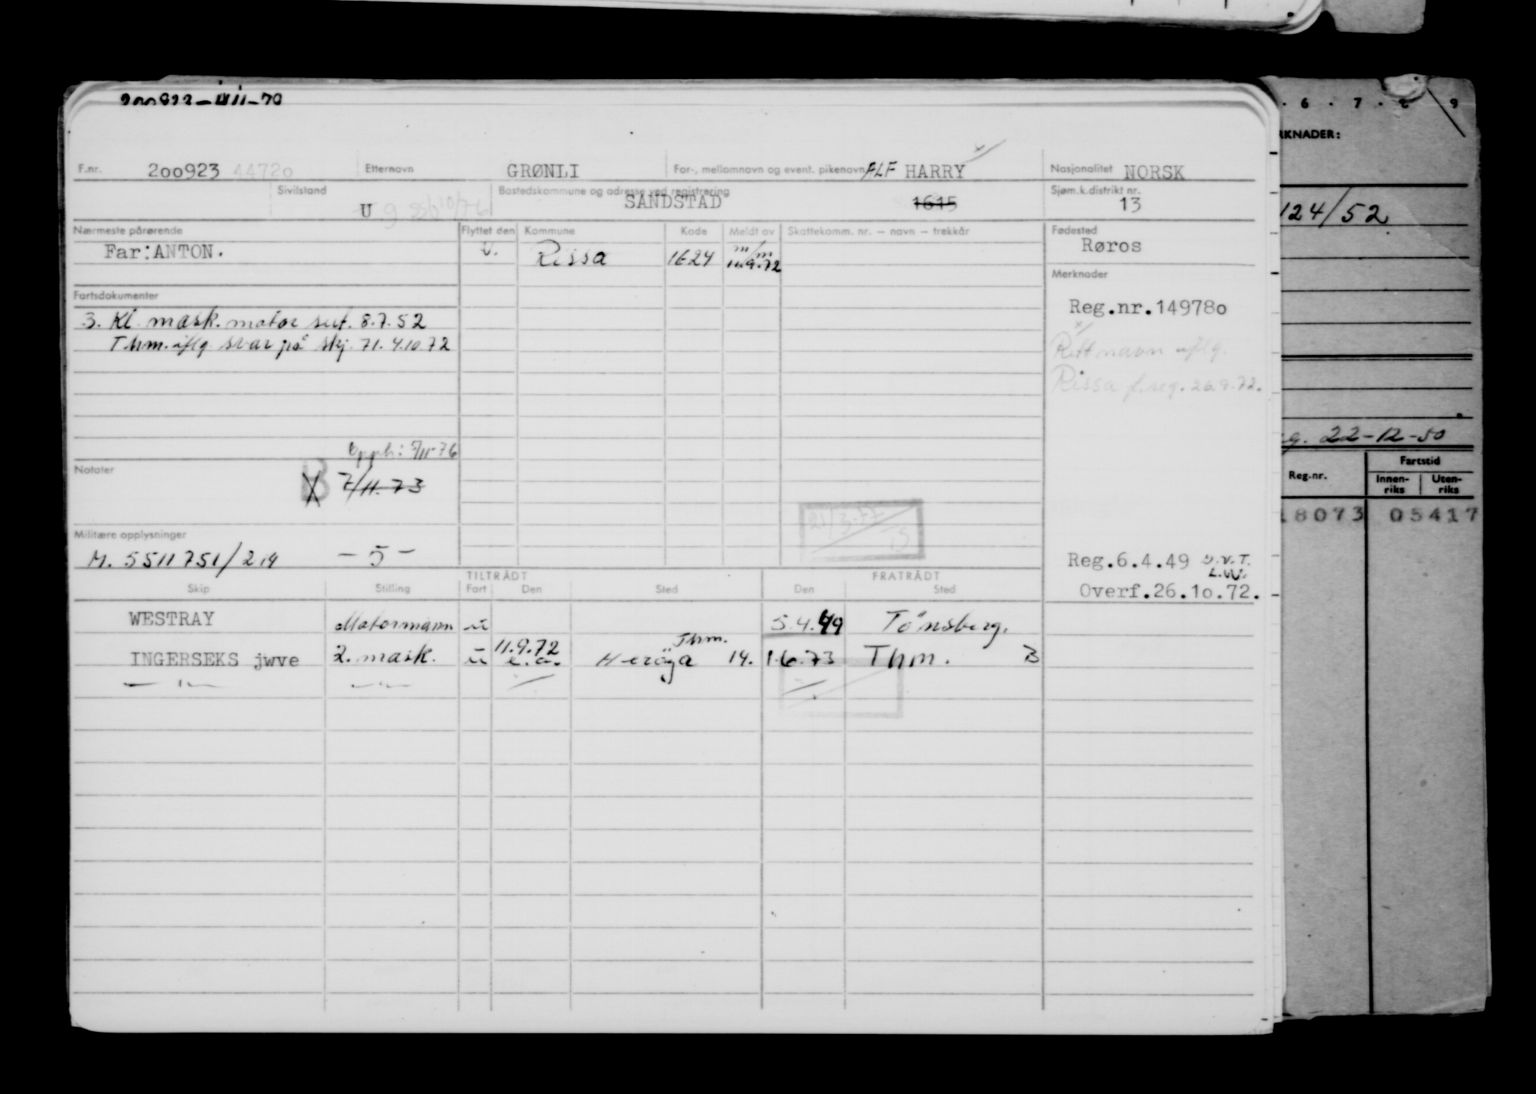 F.nr. 200923 44720 Etternavn GRØNLI For-, mellomnavn og event. pikenavn ALF HARRY Nasjonalitet NORSK
Sivilstand U Bostedskommune og adresse ved registrering SANDSTAD 1615 Sjøm.k.distrikt nr. 13
Nærmeste pårørende Flyttet den Kommune Kode Meldt av Skattekomm. nr. – navn – trekkår Fødested
Far:ANTON. U. Rissa 1624 11.9.72 Røros
Merknader
Fartsdokumenter
Reg.nr.149780
3. Kl. mask. motor sert. 8.7.52
Thm. iflg. svar på skj. 71. 4.10.72
Rett navn iflg.
Rissa f.reg. 26.9.72.
Opph: 7/11-76
Notater 7/11.73
21/3-77
Militære opplysninger
M. 5511751/219 – 5 –
Reg.6.4.49
Overf.26.10.72.
TILTRÅDT FRATRÅDT
Skip Stilling Fart Den Sted Den Sted
WESTRAY Motormann u 5.4.49 Tønsberg.
INGERSEKS jwve 2. mask. u 11.9.72 e.o. Herøya Thm. 14. 1.6.73 Thm. B
6 . 7 . 8 9
RKNADER:
124/52
22-12-50
Reg.nr. Fartstid
Innen-riks Uten-riks
18073 05417